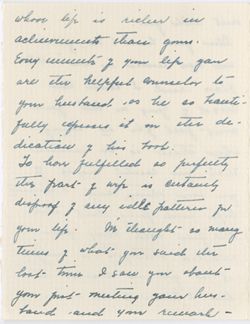 whose life is richer in
achievements than yours.
Every minute of your life you
are the helpful counselor to
your husband, as he so beauti-
fully expresses it in the de-
dication of his book.
To have fulfilled so perfectly
the part of wife is certainly
disproof of any idle patterns for
your life. I've thought so many
times of what you said the
last time I saw you about
your first meeting your hus-
band and your remark-